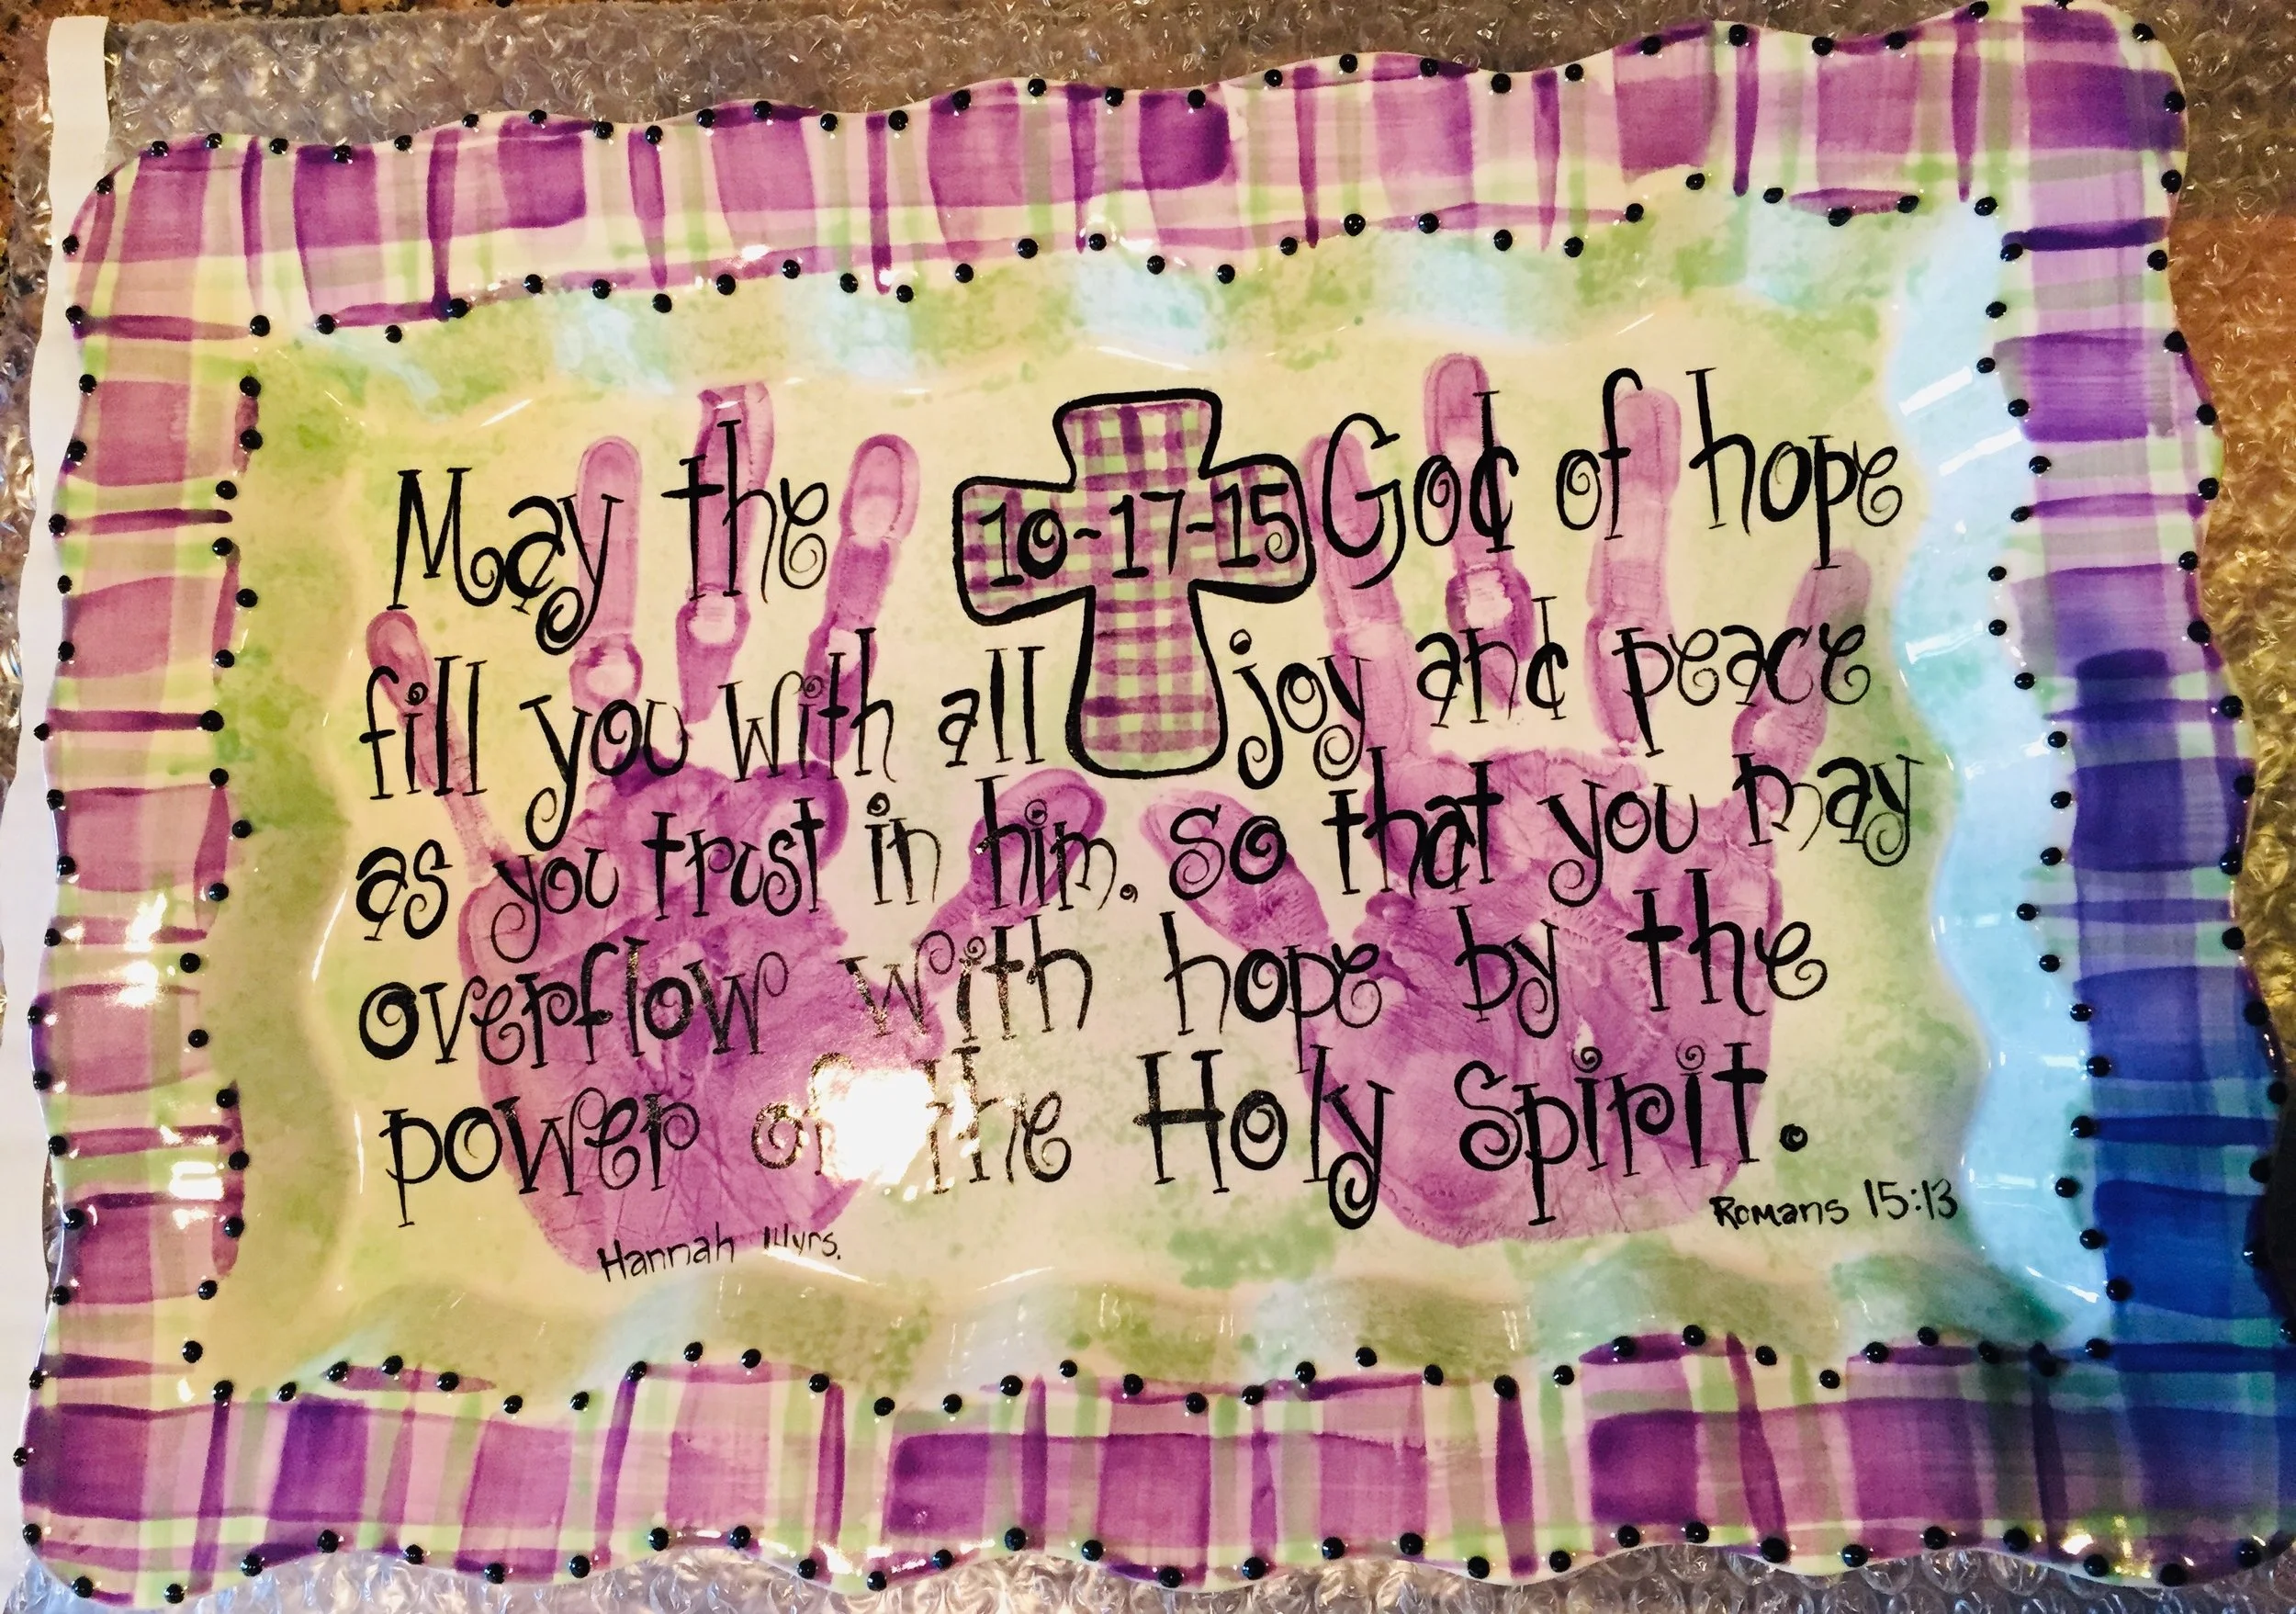 May the 10-17-15 God of hope
fill you with all joy and peace
as you trust in him. So that you may
overflow with hope by the
power of the Holy Spirit.
Romans 15:13
Hannah 14yrs.